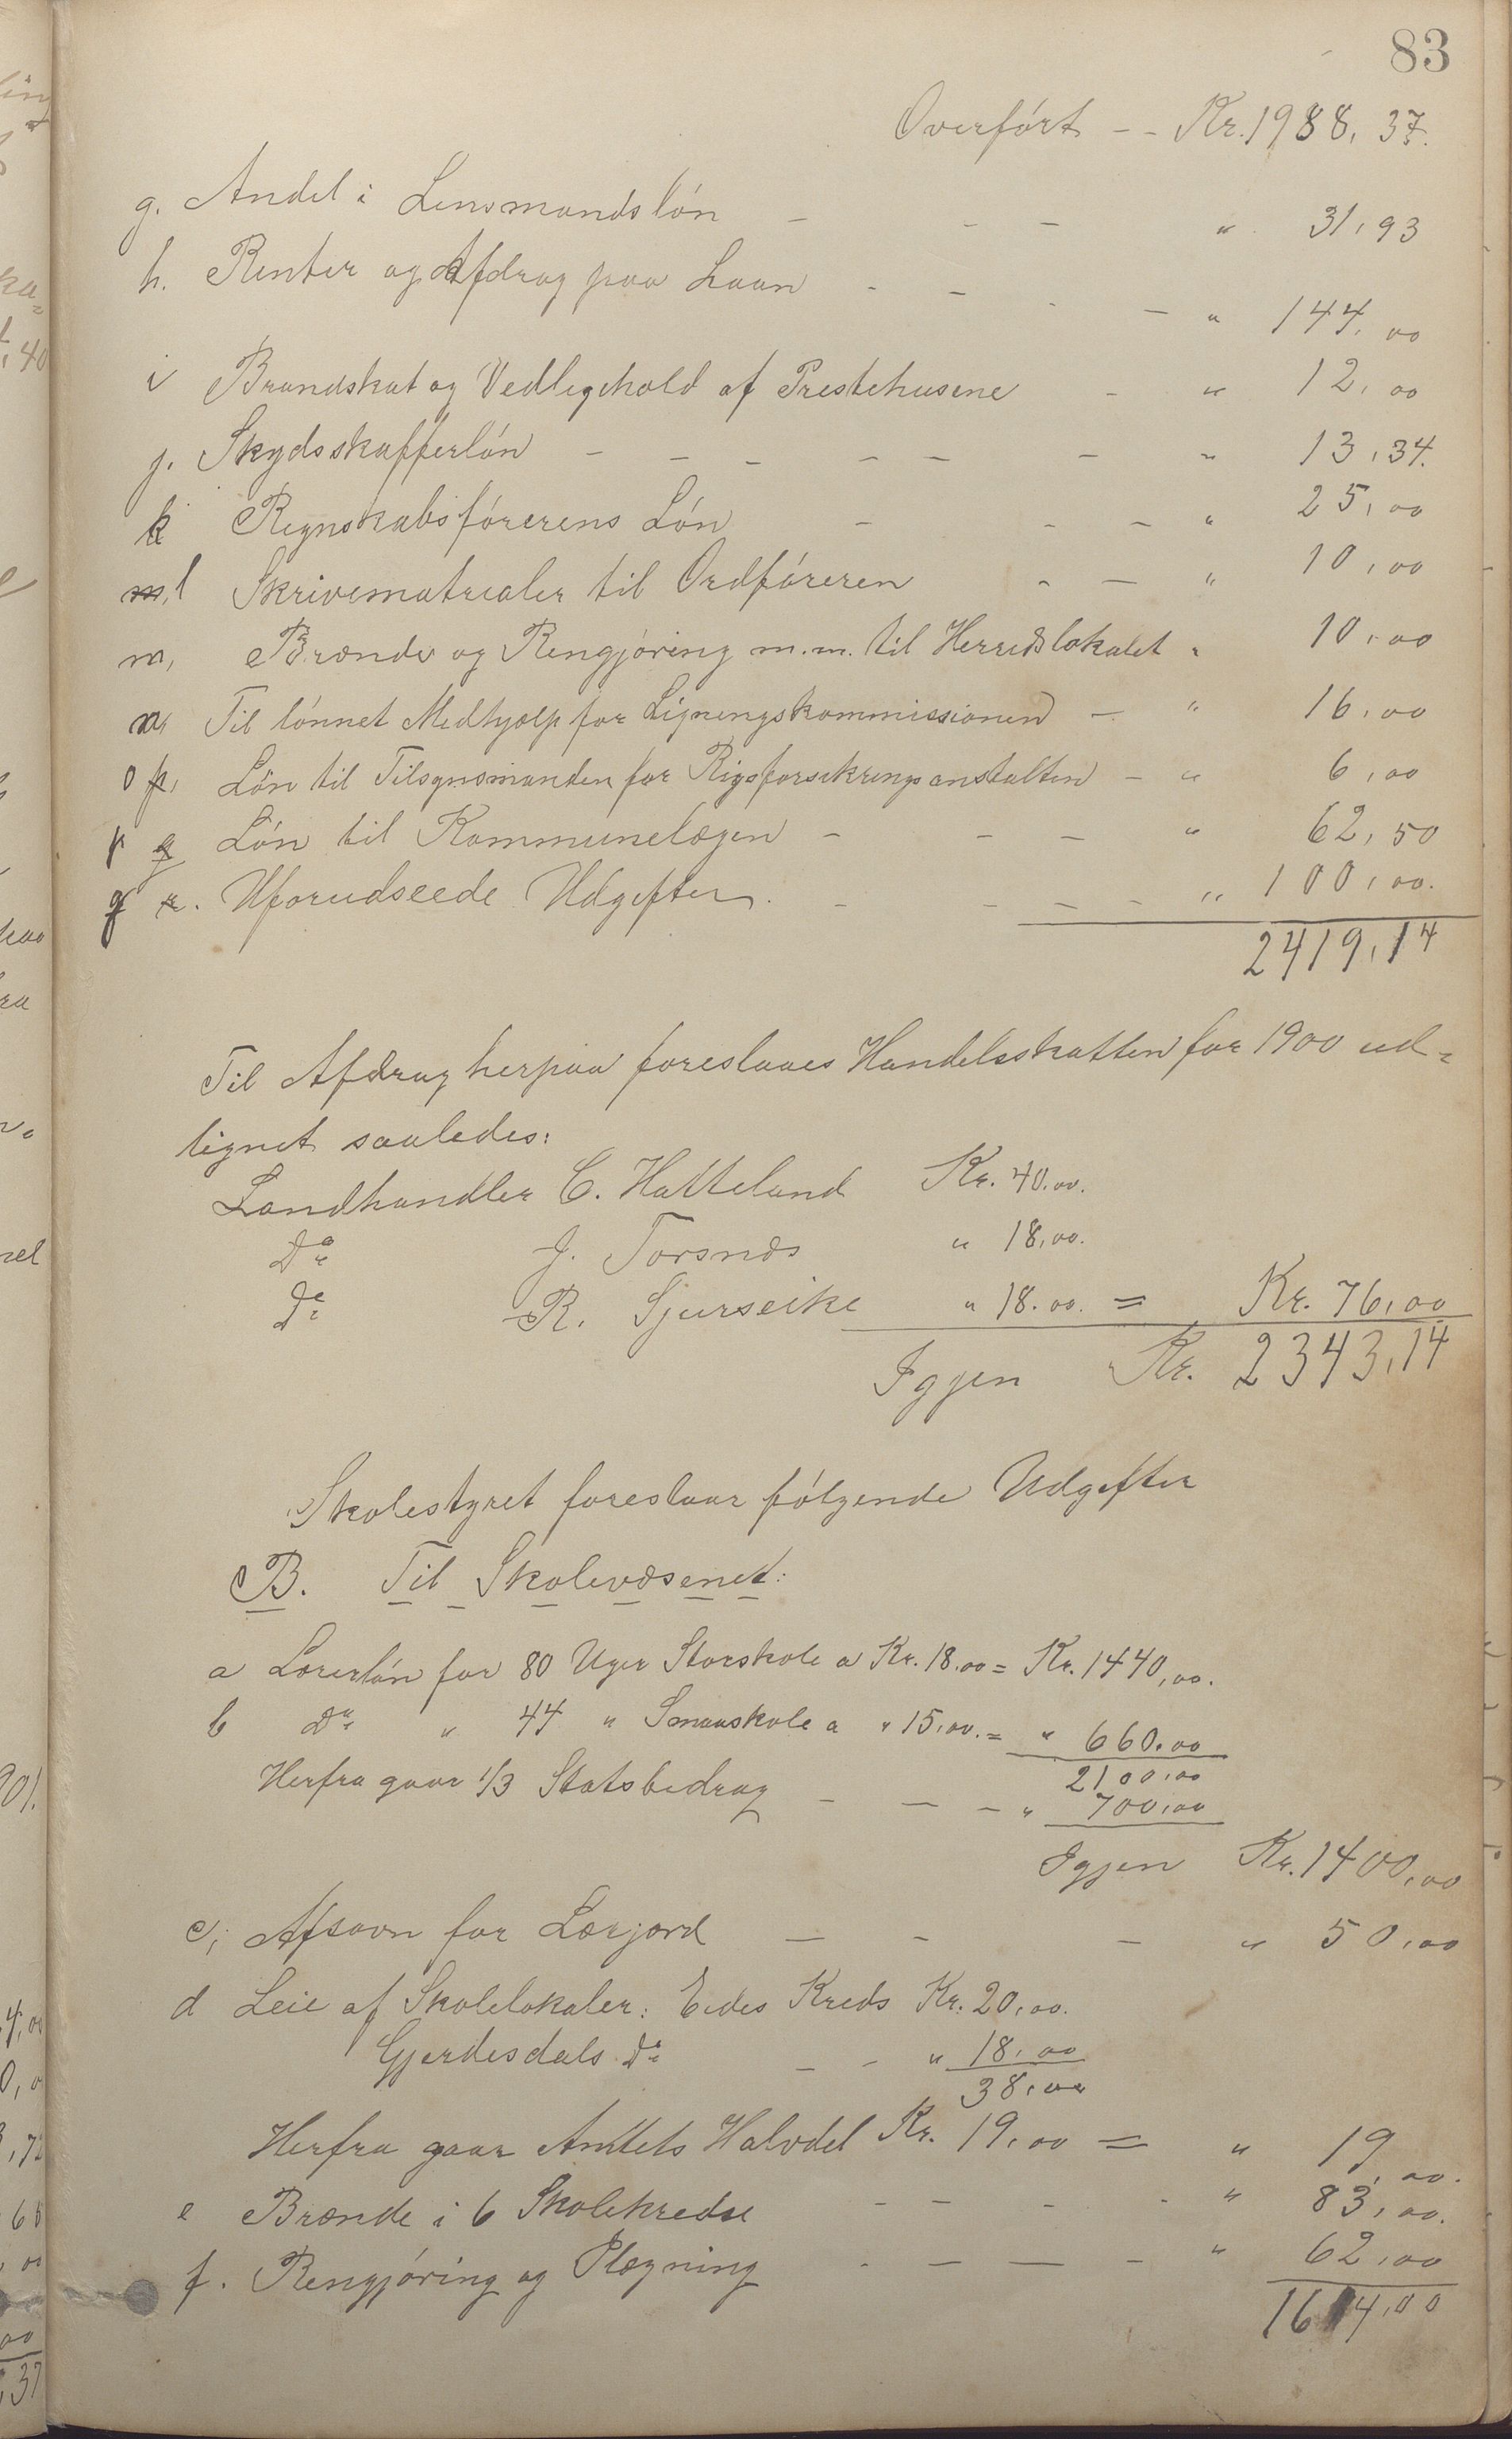 83
Overført -- Kr. 1988,37.
g. Andel i Lensmandsløn - - - " 31,93
h. Renter og Afdrag paa Laan - - - - " 144,00
i Brandskat og Vedligehold af Prestehusene - " 12,00
j. Skydsskafferløn - - - - - - " 13,34.
k Regnskabsførerens Løn - - - " 25,00
l Skrivematrealer til Ordføreren - - " 10,00
m, Brænde og Rengjøring m.m. til Herredslokalet " 10,00
n, Til lønnet Medhjælp for Ligningskommissionen - " 16,00
o Løn til Tilsynsmanden for Rigsforsikringsanstalten - " 6,00
p Løn til Kommunelægen - - - " 62,50
q Uforudseede Udgifter. - - - - " 100,00.
2419,14
Til Afdrag herpaa foreslaaes Handelsskatten for 1900 ud=
lignet saaledes:
Landhandler C. Hatteland Kr. 40.00.
Do J. Torsnæs " 18,00.
Do R. Sjurseike " 18.00. = Kr. 76,00
Igjen Kr. 2343,14
Skolestyret foreslaar følgende Udgifter
B. Til Skolevæsenet:
a Lærerløn for 80 Uger Storskole a Kr. 18.00 = Kr. 1440,00.
b Do " 44 " Smaaskole a " 15,00. = " 660.00
2100,00
Herfra gaar 1/3 Statsbedrag - - - " 700,00
Igjen Kr. 1400,00
c, Afsavn for Lærjord - - - " 50,00
d Leie af Skolelokaler: Eides Kreds Kr. 20,00.
Gjerdesdals Do - - " 18,00
38,00
Herfra gaar Amtets Halvdel Kr. 19,00 = " 19,00.
e Brænde i 6 Skolekredse - - - - " 83,00.
f. Rengjøring og Plægning - - - - " 62,00
1614,00